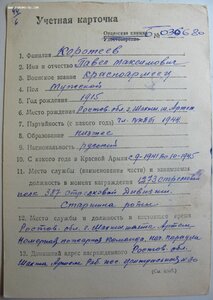 Учетная карточка
Орденская книжка
№ 030680
1. Фамилия Коротеев
2. Имя и отчество Павел Максимович
3. Воинское звание красноармеец
4. Пол Мужской
5. Год рождения 1915
6. Место рождения Ростов. обл. г. Шахты
7. Партийность (с какого года) 1944
8. Образование низшее
9. Национальность русский
10. С какого года в Красной Армии с 9-1941 по 10-1945
11. Место службы (наименование части) и занимаемая
должность в момент награждения 1273 стрелков
полк 387 стрелковой дивизии
Старшина роты
12. Место службы и должность в настоящее время
Ростов. обл. г. Шахты шахта Артем
команда нач. караула
13. Домашний адрес награжденного Ростов. обл.
Шахта Артем
(См. на об.)